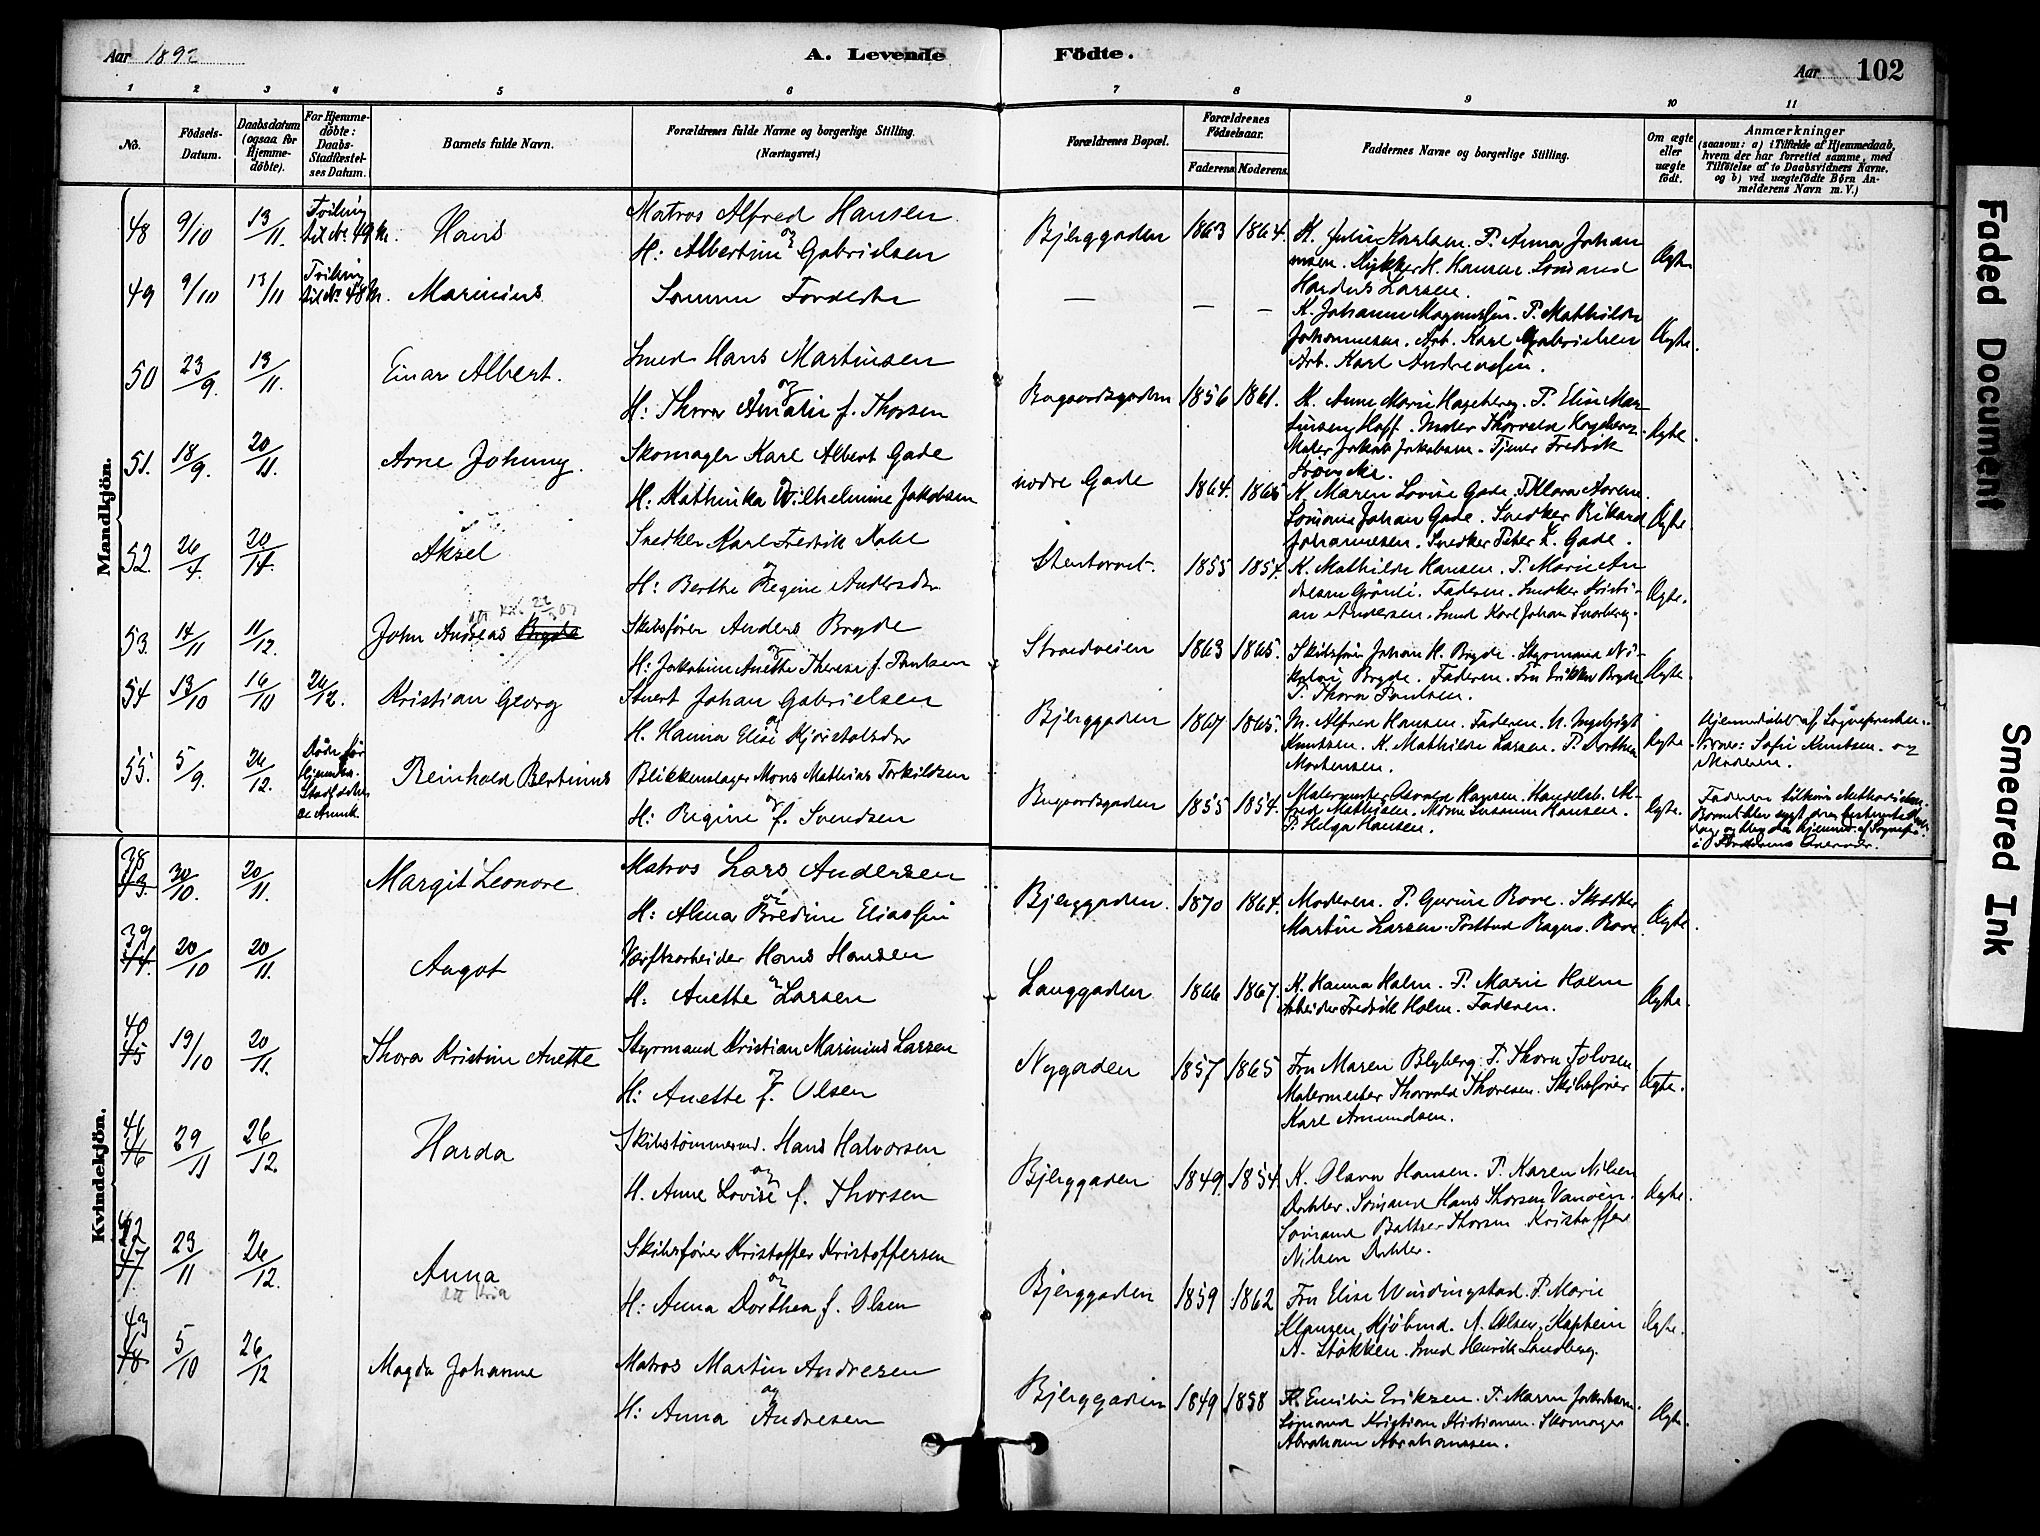 Aar 1892
A. Levende Födte.
Aar 102
1 2 3 4 5 6 7 8 9 10 11
No.
Födsels-
Datum.
Daabsdatum
(ogsaa for
Hjemme-
döbte).
For Hjemme-
döbte:
Daabs-
Stadfæstel-
ses Datum.
Barnets fulde Navn.
Forældrenes fulde Navne og borgerlige Stilling.
(Næringsvei.)
Forældrenes Bopæl.
Forældrenes
Födselsaar.
Faderens Moderens
Faddernes Navne og borgerlige Stilling.
Om ægte
eller
uægte
födt.
Anmærkninger
(saasom: a) i Tilfælde af Hjemmedaab,
hvem der har forrettet samme, med
Tilföielse af to Daabsvidners Navne,
og b) ved uægtefödte Börn An-
melderens Navn m. V.)
Mandkjön.
48 9/10 13/11. Tvilling
til No. 49 M.
Hans
Matros Alfred Hansen
og
H: Albertine Gabrielsen
Bjerggaden 1863 1864.
K. Julie Karlsen. P. Anna Johan
nesen. Dykker H. Hansen. Sömand
Larsen.
Ægte
49 9/10 13/11 Tvilling
til No. 48 M.
Marinius
Samme Forældre
— — —
K. Johanne Magnussen. P. Mathilde
Johannesen. Arb. Karl Gabrielsen
Arb. Karl Andreassen.
Ægte.
50 23/9. 13/11.
Einar Albert.
Smed Hans Martinsen
og
H: Thora Amalie f. Thorsen
Bugaardsgaden 1856 1861.
K. Anne Marie Hageberg. P. Elise Mar-
tinsen Hoff. Maler Thorvald Hageberg
Maler Jakob Jakobsen. Tjener Fredrik
Ægte.
51. 18/9. 20/11.
Arne Johnny.
Skomager Karl Albert Gade
og
H: Kathinka Wilhelmine Jakobsen
nedre Gade 1864. 1865
K. Maren Lovise Gade. P. Klara
Sömand Johan Gade. Snedker Rikard
Johannesen. Snedker Peter K. Gade.
Ægte
52. 26/4. 20/11.
Aksel
Snedker Karl Fredrik
og
H: Berthe Regine Andersdtr
Stentorvet. 1855 1854.
K. Mathilde Hansen. P. Marie An
dresen Grönli. Faderen. Snedker Kristi-
an Andersen. Smed Karl Johan
Ægte.
53. 14/11 11/12.
John Andreas Bryde
Skibsförer Anders Bryde
og
H: Jakobine Anette Therese f. Paulsen
Strandveien 1863 1865.
Skibsförer Johan H. Bryde. Styrmand Ni-
kolai Bryde. Faderen. Fru Erikka Bryde
P. Thora Paulsen.
Ægte.
54 13/10 16/10 26/12.
Kristian Georg
Stuert Johan Gabrielsen
og
H. Hanna Elise Kjöstolsdtr
Bjerggaden 1867 1865.
M. Alfred Hansen. Faderen. U. Ingebrigt
Knutsen. K. Mathilde Larsen. P. Dorthea
Mortensen.
Ægte.
Hjemmedöbt af Sognepresten.
Vidner: Sofie Knutsen. og
Moderen.
55. 5/9. 26/12.
Reinhold Bertinius
Blikkenslager Mons Mathias Torkildsen
og
H: Regine f. Svendsen
Bugaardsgaden 1855 1854.
Malermester Oswald Hansen. Handelsb. Al-
fred Mathisen. Marie Susanne Hansen.
P. Helga Hansen.
Ægte.
Kvindekjön.
38
43. 30/10. 20/11.
Margit Leonore
Matros Lars Andersen
og
H: Alma Bredine Eliassen
Bjerggaden. 1870 1864.
Moderen. P. Gurine Bove. Skrædder
Martin Larsen. Postbud Ragnv. Bove
Ægte.
39
44. 20/10 20/11.
Aagot
Værftsarbeider Hans Hansen
og
H: Anette Larsen
Langgaden 1866 1867.
K. Hanna Holm. P. Marie Holm
Arbeider Fredrik Holm. Faderen.
Ægte.
40
45 19/10 20/11.
Thora Kristine Anette
Styrmand Kristian Marinius Larsen
og
H: Anette f. Olsen
Nygaden 1857 1865
Fru Maren Blyberg. P. Thora Tolvsen
Malermester Thorvald Thoresen. Skibsförer
Karl Amundsen.
Ægte.
41
46 29/11 26/12.
Harda
Skibstömmermd. Hans Halvorsen
og
H. Anne Lovise f. Thorsen
Bjerggaden 1849. 1854.
K. Olava Hansen. P. Karen Nilsen
Dahler. Sömand Hans Thorsen
Sömand Baltzer Thorsen Kristoffer
Nilsen Dahler.
Ægte.
42
47. 23/11 26/12.
Anna
Skibsförer Kristoffer Kristoffersen
og
H: Anna Dorthea f. Olsen
Bjerggaden 1859 1862
Fru Elise Windingstad. P. Marie
Klausen, Kjöbmd. A. Olsen. Kaptein
A. Stökken. Smed Henrik Sandberg.
Ægte.
43
48 5/10 26/12
Magda Johanne
Matros Martin Andresen
og
H: Anna Andresen
Bjerggaden 1849 1858
K. Emilie Eriksen. P. Maren Jakobsen.
Sömand Kristian Kristiansen. Skomager
Abraham Abrahamsen.
Ægte.
Faded Document
Smeared Ink